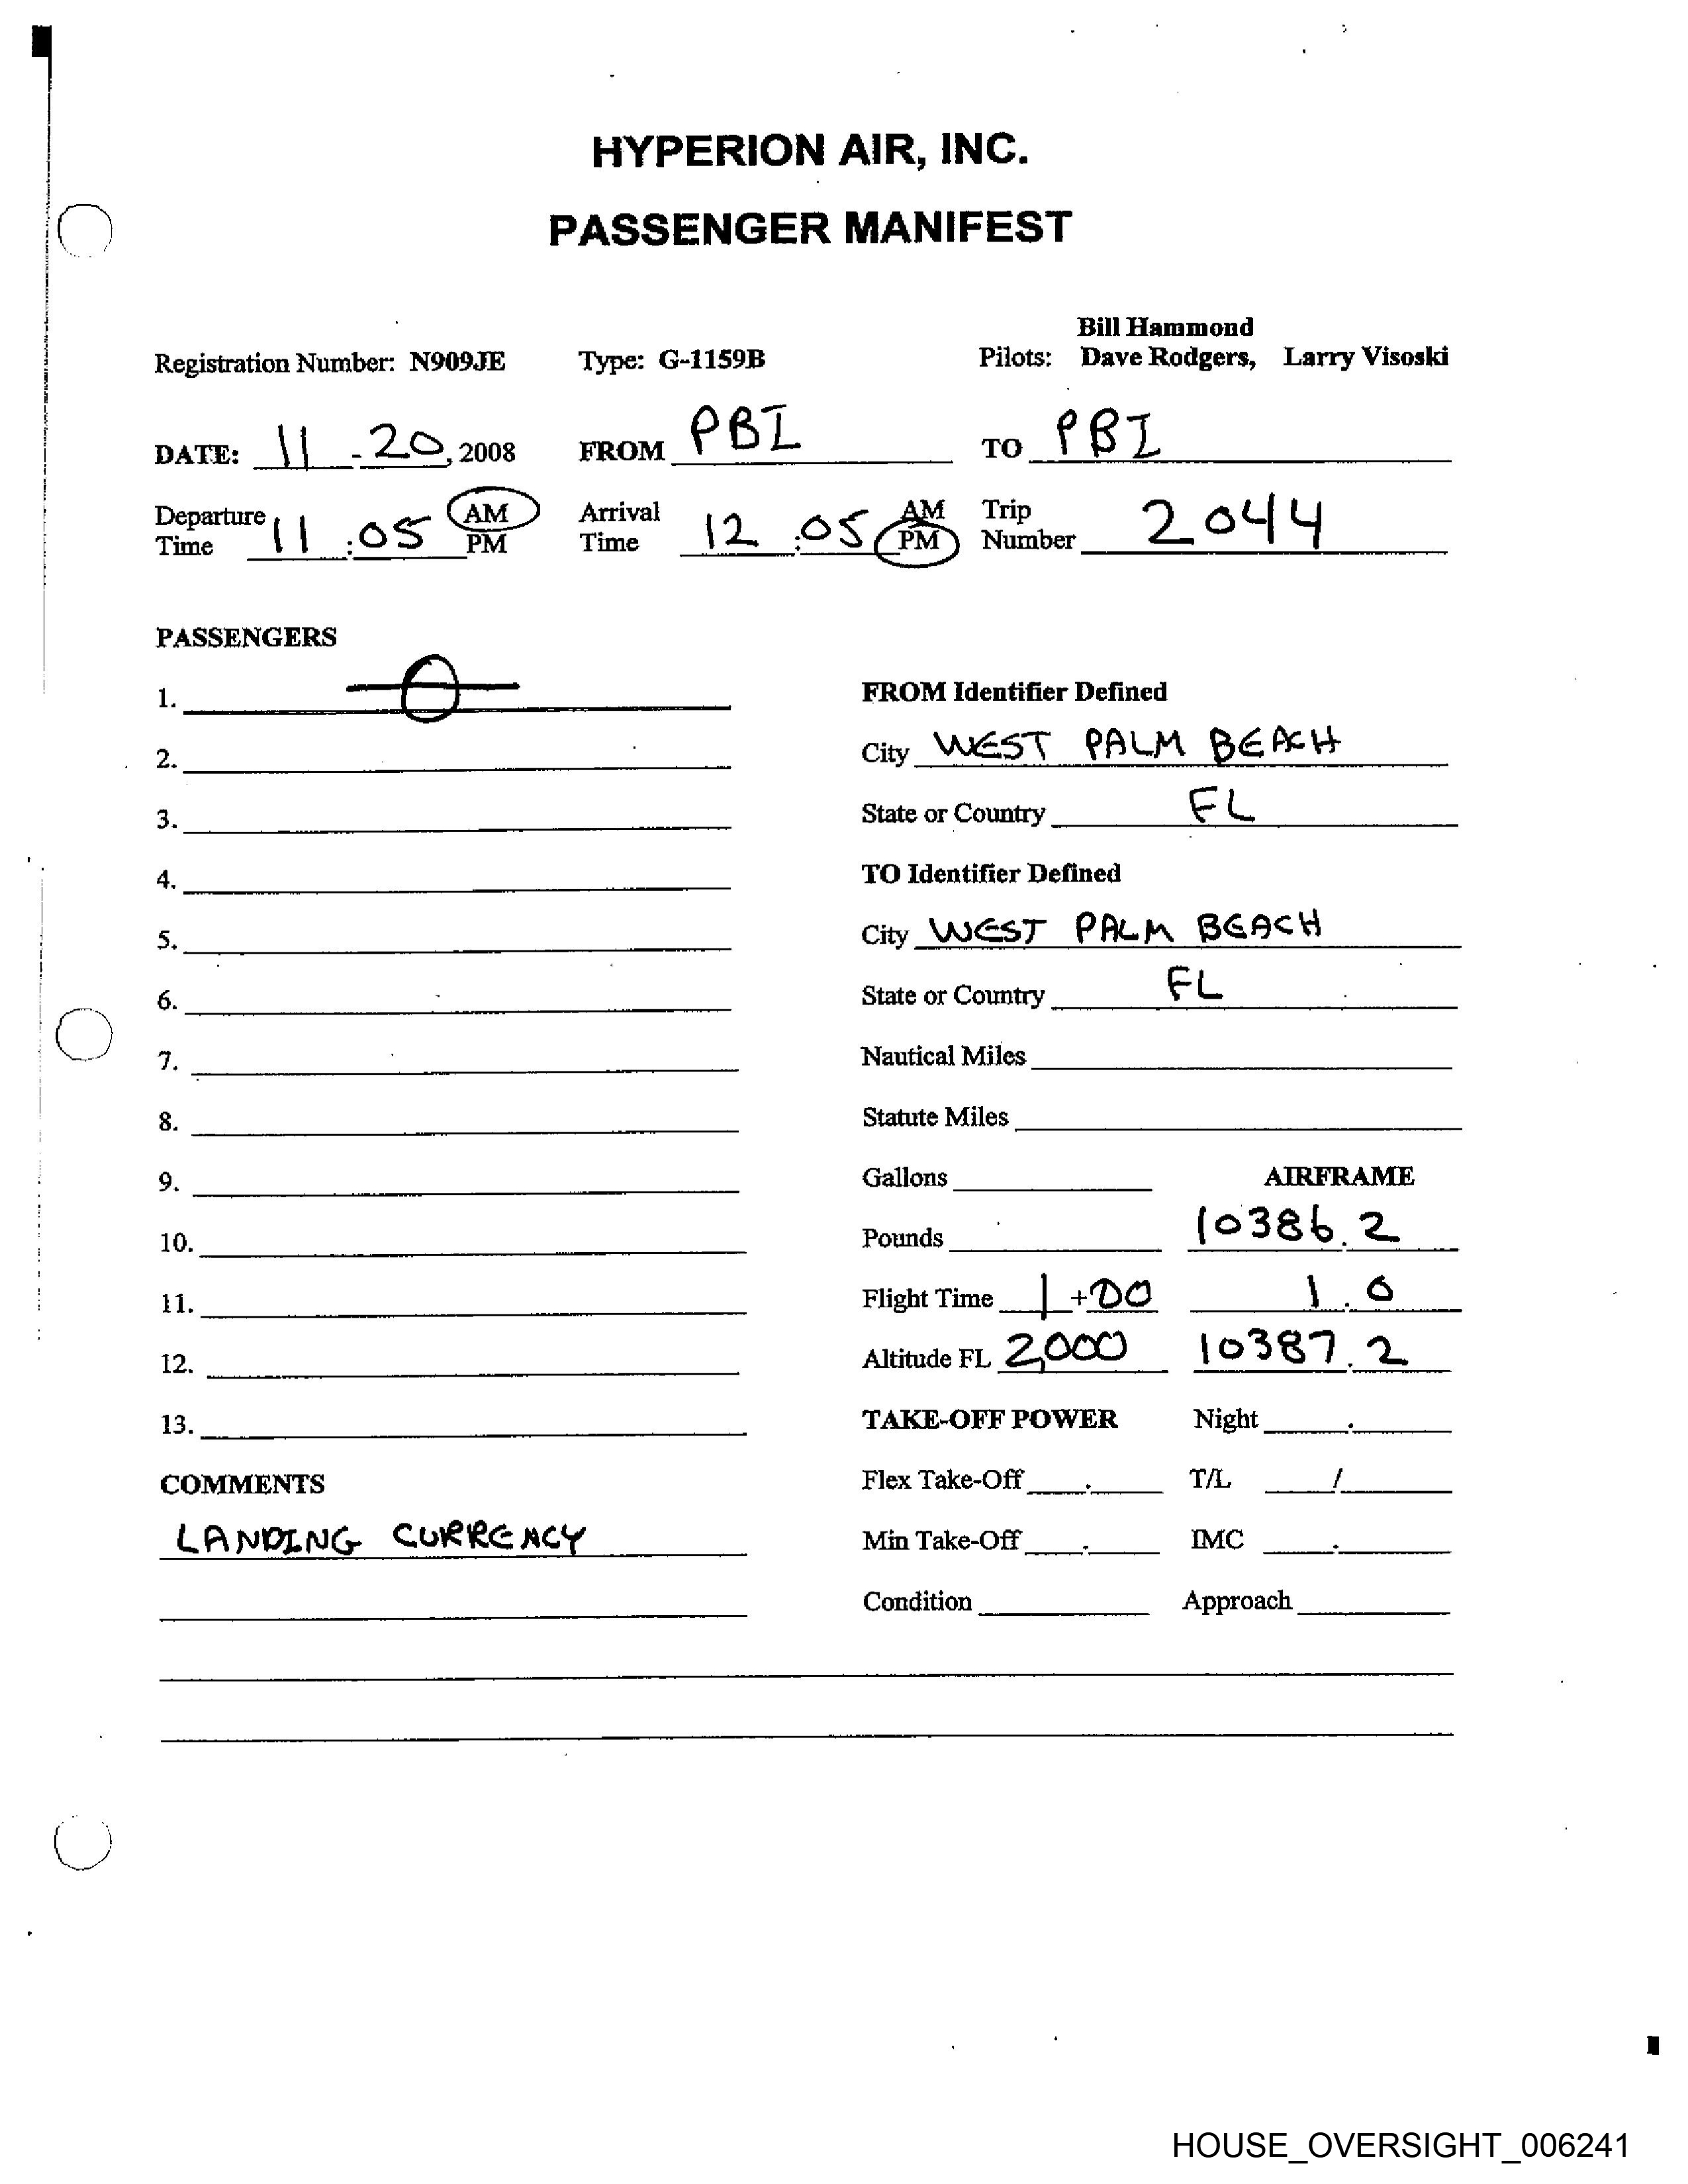 HYPERION AIR, INC.
PASSENGER MANIFEST
Bill Hammond
Registration Number: N909JE Type: G-1159B Pilots: Dave Rodgers, Larry Visoski
DATE: 11 - 20, 2008 FROM PBI TO PBI
Departure Time 11 :05 AM PM Arrival Time 12 :05 AM PM Trip Number 2044
PASSENGERS
1. 0
2.
3.
4.
5.
6.
7.
8.
9.
10.
11.
12.
13.
COMMENTS
LANDING CURRENCY
FROM Identifier Defined
City WEST PALM BEACH
State or Country FL
TO Identifier Defined
City WEST PALM BEACH
State or Country FL
Nautical Miles
Statute Miles
Gallons AIRFRAME
Pounds 10386.2
Flight Time 1+00 1.0
Altitude FL 2,000 10387.2
TAKE-OFF POWER Night .
Flex Take-Off . T/L /
Min Take-Off . IMC .
Condition Approach
HOUSE_OVERSIGHT_006241